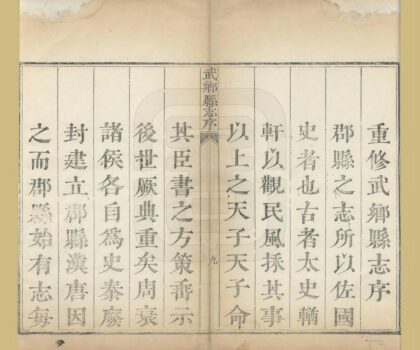 重修武鄉縣志序
郡縣之志所以佐國
史者也古者太史輶
軒以觀民風採其事
以上之天子天子命
武鄉縣志序
九
其臣書之方策垂示
後世厥典重矣周衰
諸侯各自爲史秦廢
封建立郡縣漢唐因
之而郡縣始有志每